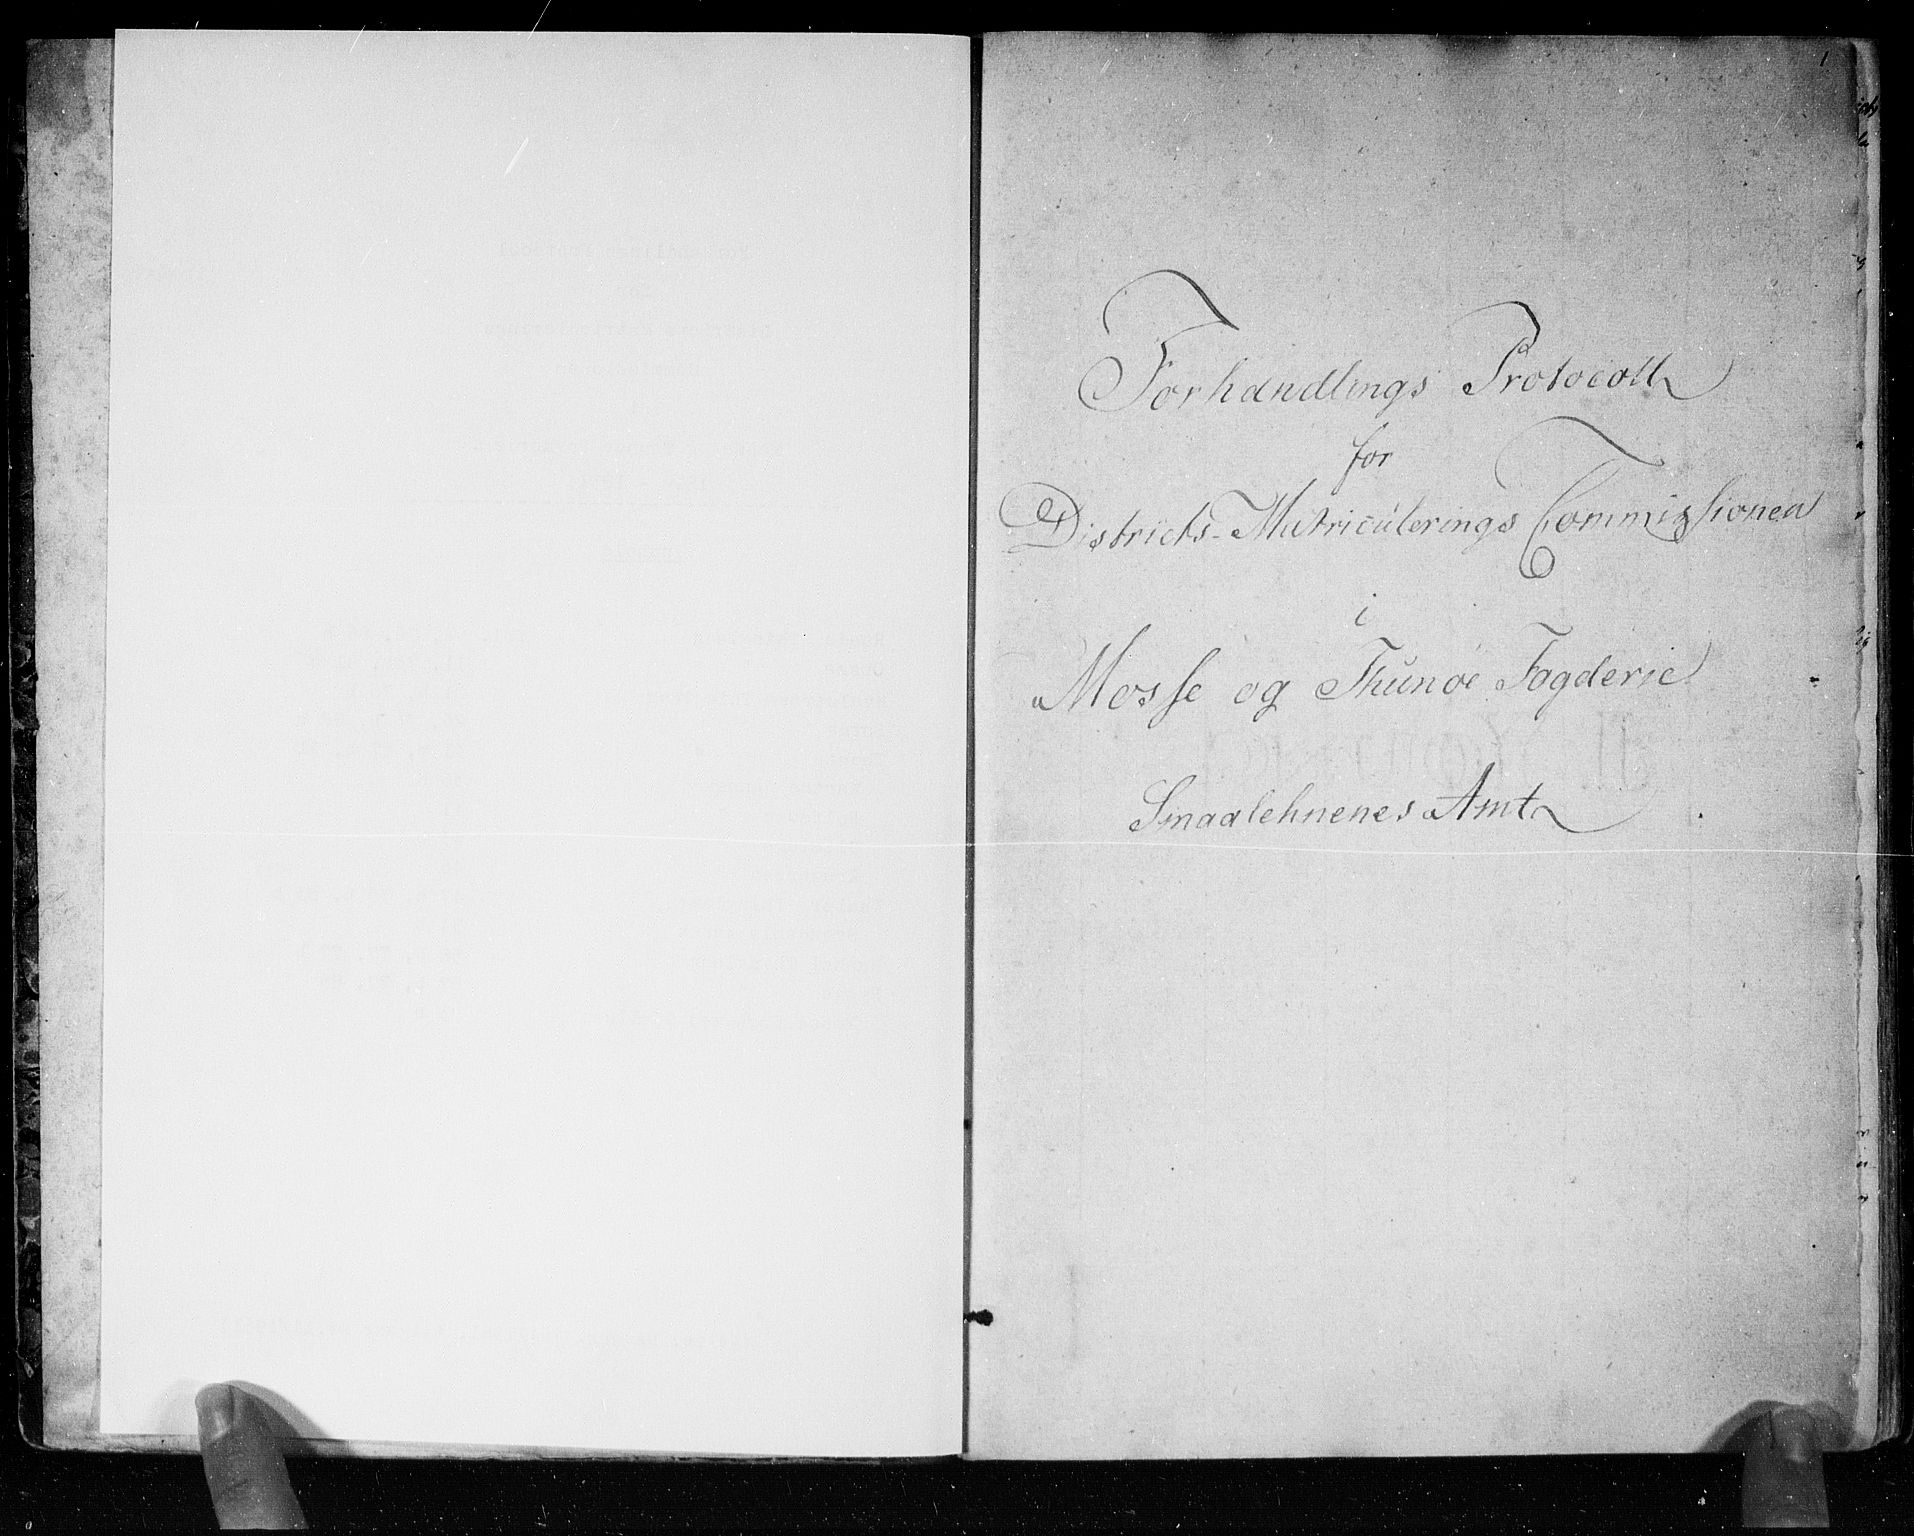 1
Forhandlings Protocoll
for
Districts-Matriculerings Commissionen
i
Mosse og Thunøe Fogderie
Smaalehnenes Amt